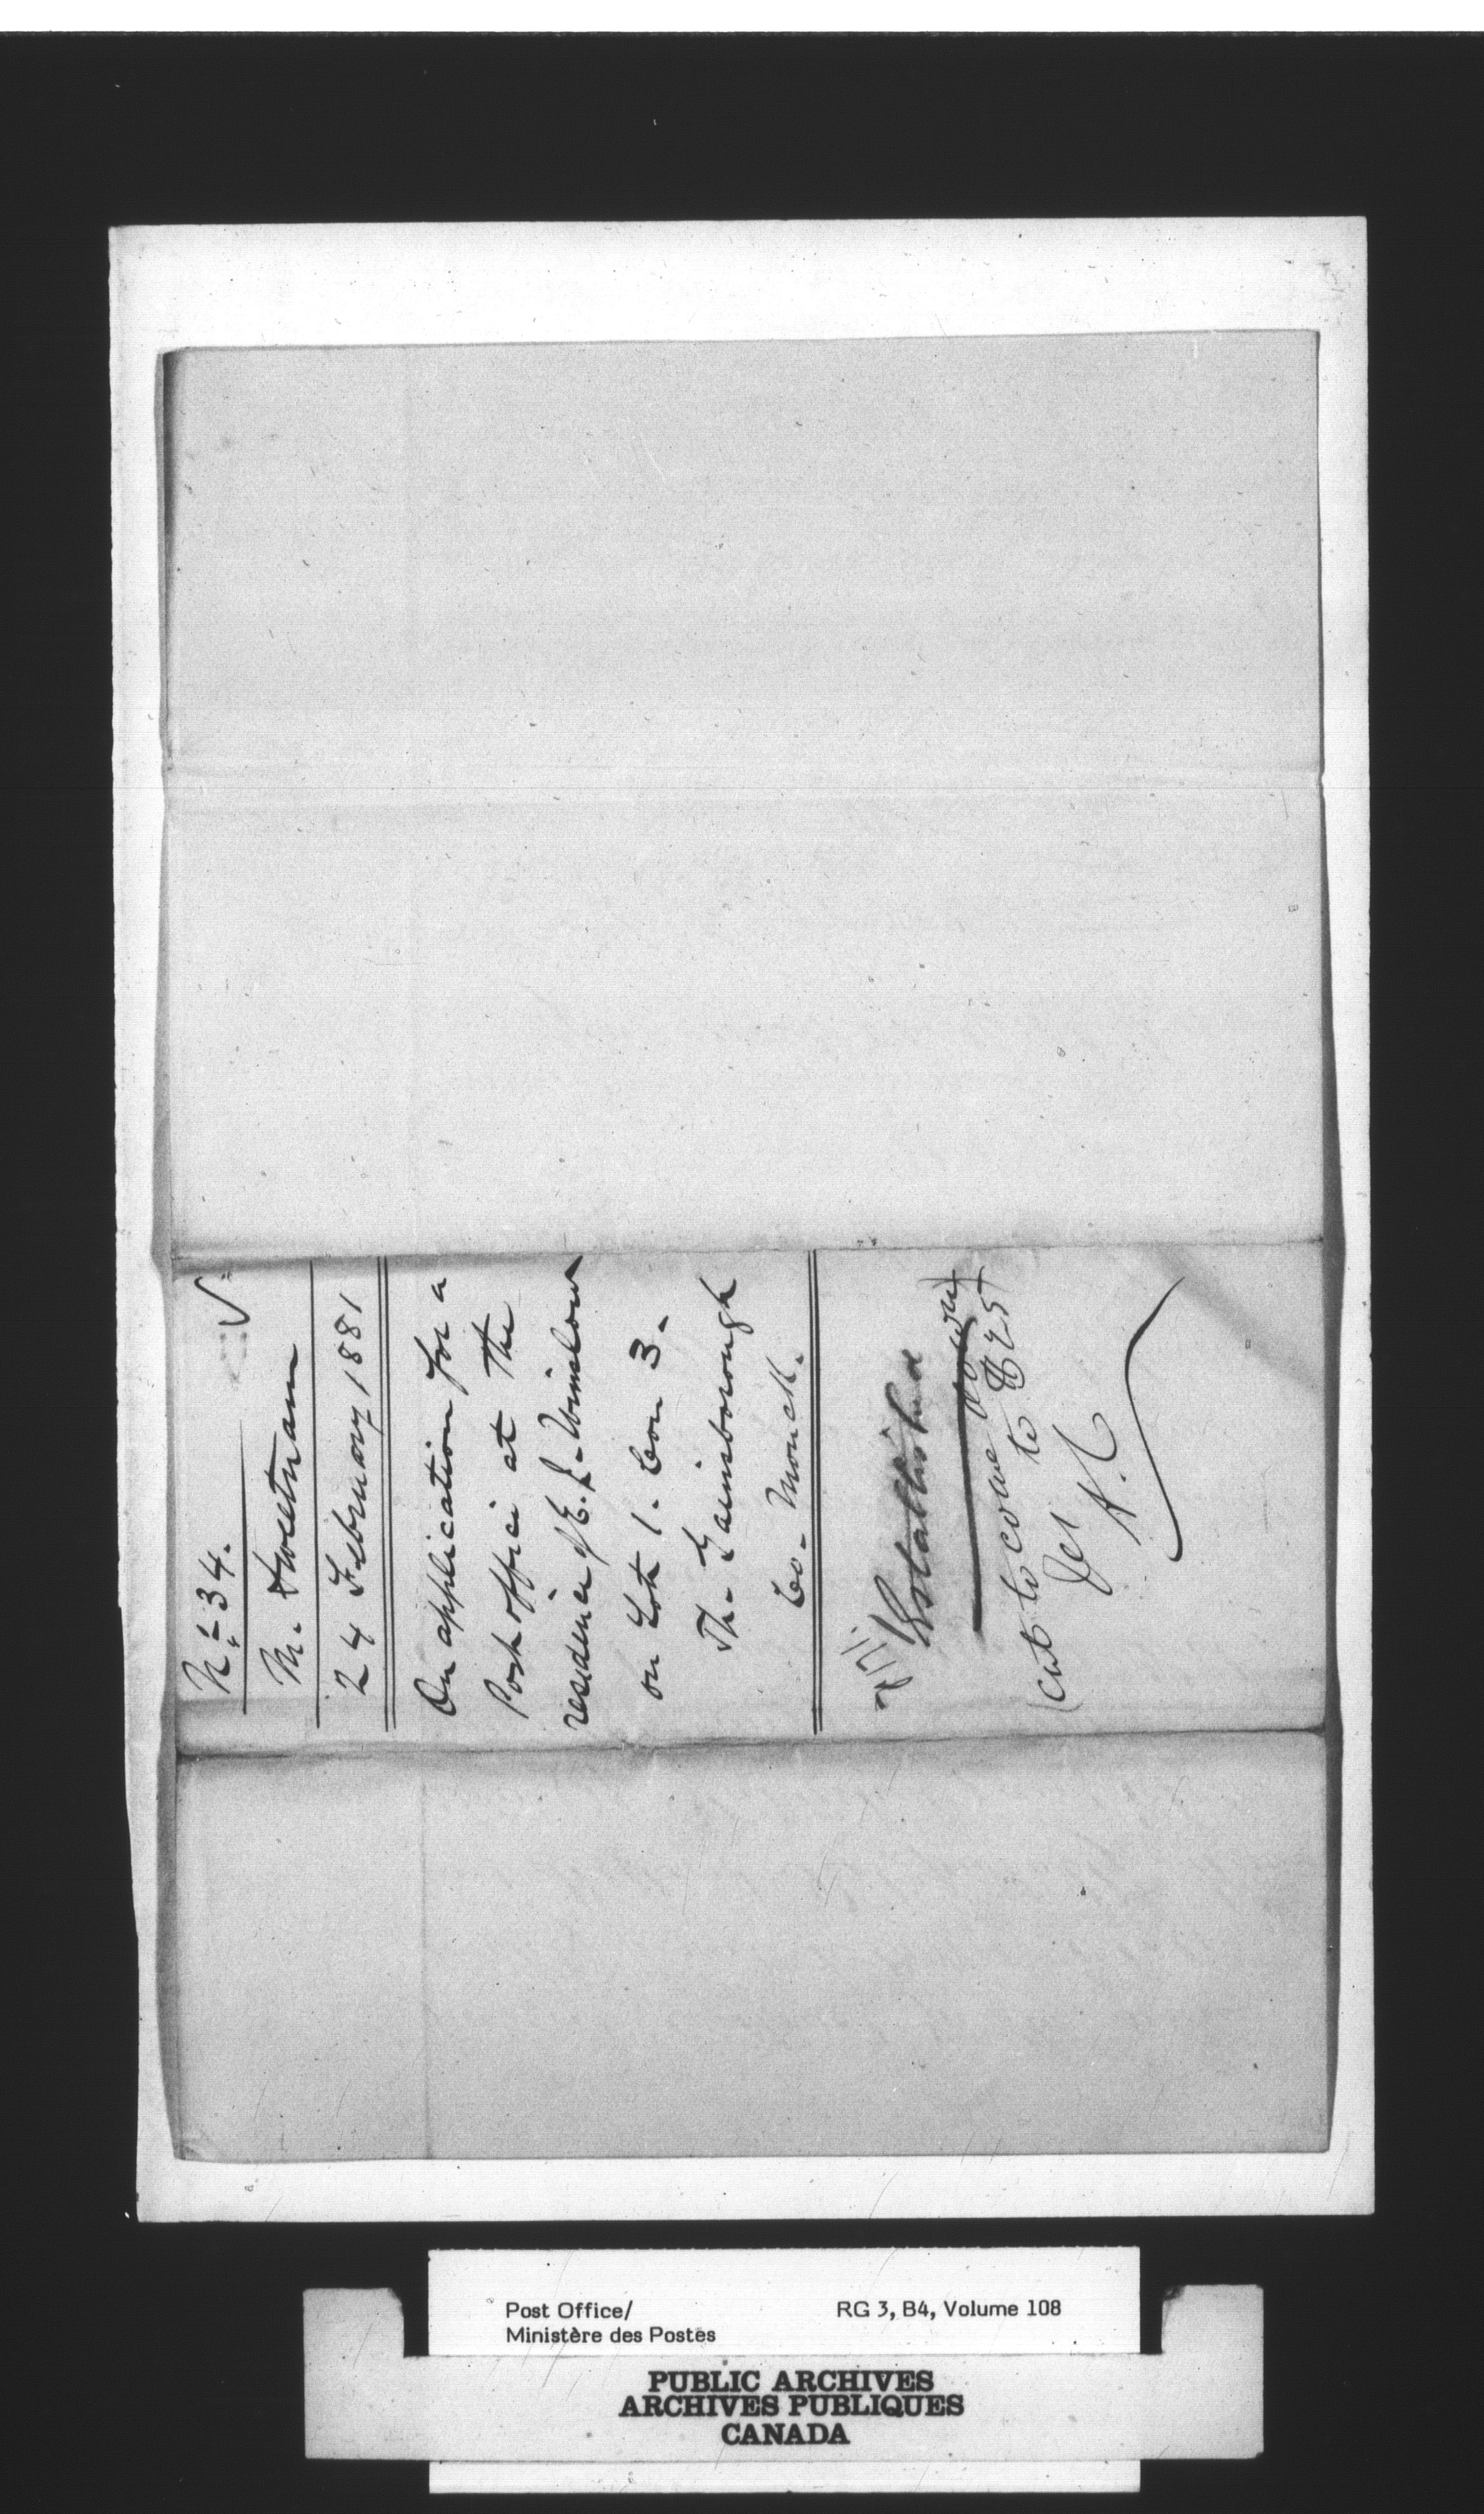 No. 34.
M. Sweetnam
24 February 1881
On application for a
Post office at the
residence of E. L. Winslow
on Lot 1. Con 3.
Th. Gainsborough
Co. Monck.
Established
(cut to come down
to $25)
Yes
Post Office/
Ministère des Postes
RG 3, B4, Volume 108
PUBLIC ARCHIVES
ARCHIVES PUBLIQUES
CANADA